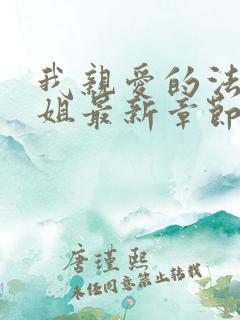 我親愛的法
姐最新章節
唐瑾熙
未任同意禁止轉載